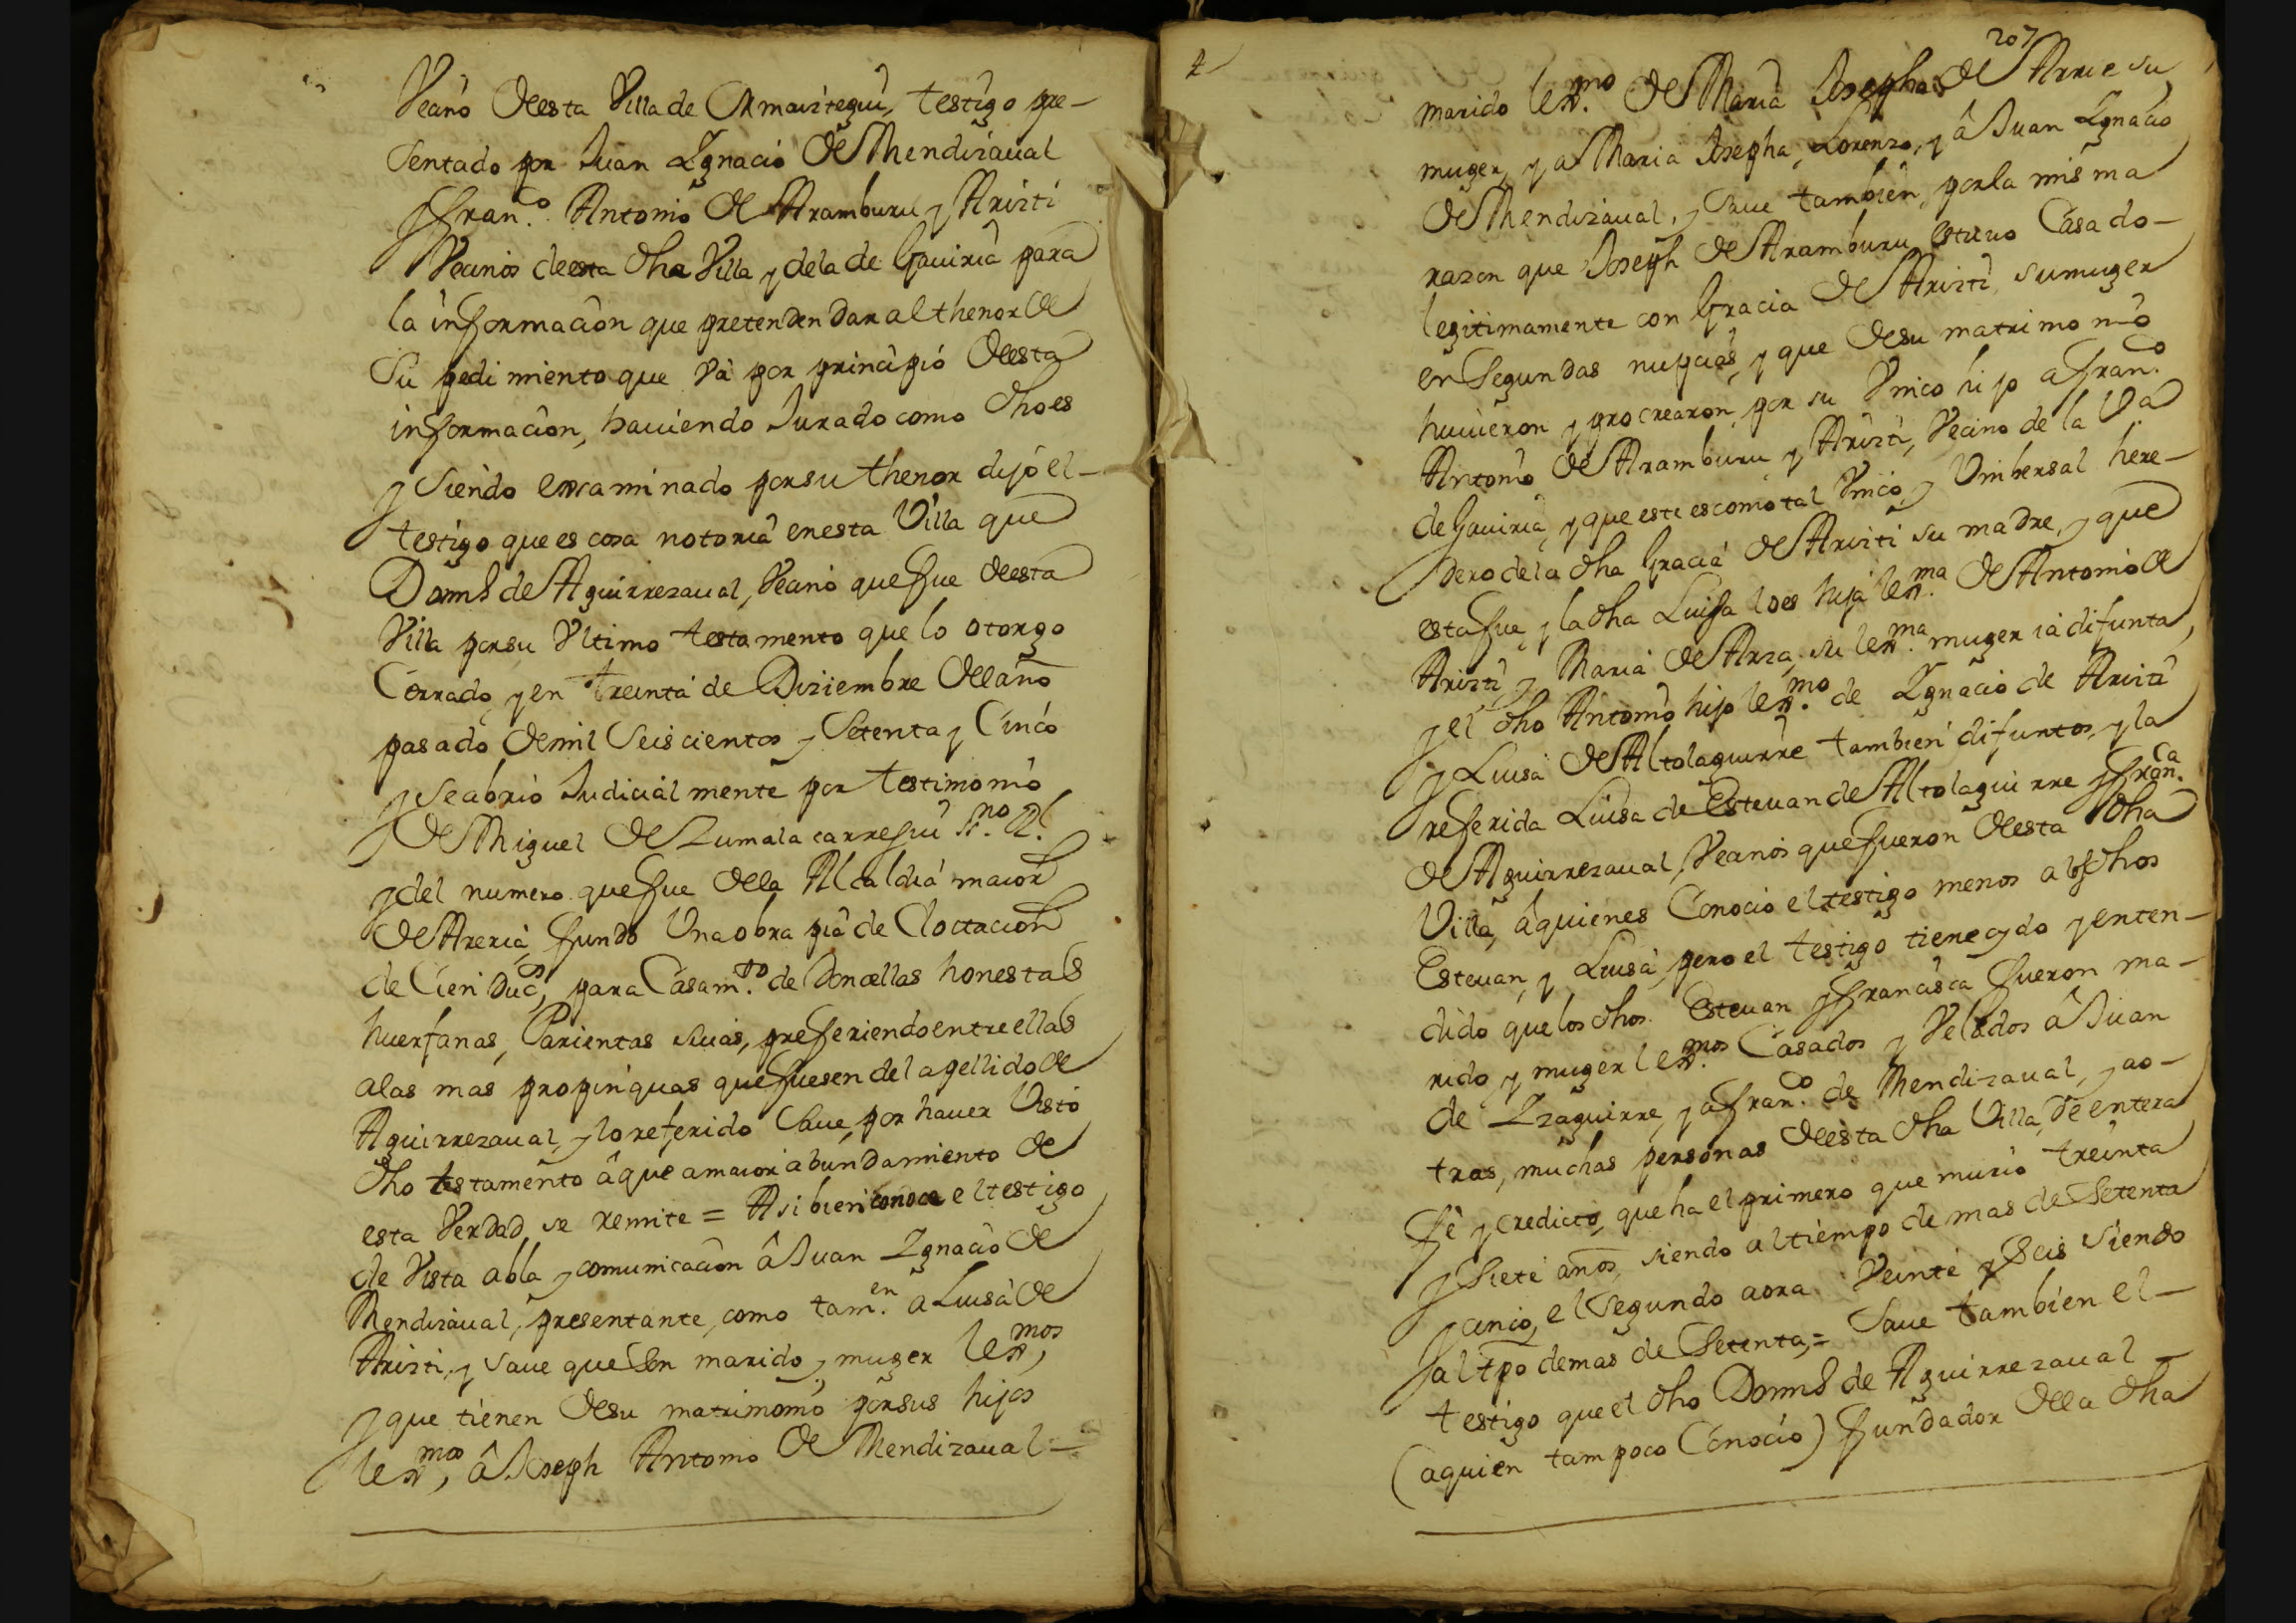 Vecino de esta Villa de Ormaiztegui, testigo pre-
sentado por Juan Ygnacio de Mendizaual
y Fran.co Antonio de Aramburu y Arizti
Vecinos de esta dha Villa y de la de Gauiria para
la informacion que pretenden dar al thenor de
su pedimiento que va por principio de esta
informacion, hauiendo Jurado como dho es
y siendo examinado por su thenor dijo el-
testigo que es cosa notoria en esta Villa que
Doms de Aguirrezaual, Vecino que fue de esta
Villa por su Vltimo testamento que lo otorgo
Cerrado, y en treinta de Diziembre del año
pasado de mil Seiscientos y Setenta y Cinco
y se abrio Judicialmente por testimonio
de Miguel de Zumalacarregui ss.no Rl.
y del numero que fue de la Alcaldia maior
de Areria, fundo Vna obra pia de Doctacion
de Cien Duc.s, para Casam.to de Doncellas honestas
huerfanas, Parientas suias, prefiriendo entre ellas
a las mas propinquas que fuesen del apellido de
Aguirrezaual, y lo referido Saue, por hauer Visto
dho testamento â que a maior abundamiento de
esta Verdad, se remite = Asi bien conoce el testigo
de Vista abla y comunicacion â Juan Ygnacio de
Mendizaual, presentante, como tam.en a Luisa de
Arizti, y saue que Son marido, y muger lex.mos,
y que tienen de su matrimonio por sus hijos
lex.mos, â Joseph Antonio de Mendizaual-
207
marido lex.mo de Maria Josepha de Arrue su
muger, y a Maria Josepha, Lorenzo, y â Juan Ygnacio
de Mendizaual, y Saue tambien, por la misma
razon que Joseph de Aramburu estuuo Casado-
legitimamente con Gracia de Arizti su muger
en Segundas nupcias, y que de su matrimonio
huuieron y procrearon, por su Vnico hijo a Fran.co
Antonio de Aramburu y Arizti, Vecino de la V.a
de Gauiria, y que este es como tal Vnico, y Vnibersal here-
dero de la dha Gracia de Arizti su madre, y que
esta fue, y la dha Luisa lo es hija lex.ma de Antonio de
Arizti, y Maria de Arza, su lex.ma muger ia difunta,
y el dho Antonio, hijo lex.mo de Ygnacio de Arizti
y Luisa de Altolaguirre tambien difuntos, y la
referida Luisa de Esteuan de Altolaguirre y Fran.ca
de Aguirrezaual, Vecinos que fueron de esta dha
Villa, â quienes Conocio el testigo menos a los dhos
Esteuan, y Luisa, pero el testigo tiene oydo y enten-
dido que los dhos Esteuan y Francisca fueron ma-
rido y muger lex.mos Casados y Velados â Juan
de Yzaguirre, y a Fran.co de Mendizaual, y ao-
tras, muchas personas de esta dha Villa, de entera
fè y credicto, que ha el primero que murio treinta
y Siete años, siendo al tiempo de mas de Setenta
y cinco, el Segundo aora Veinte y Seis siendo
al tpo de mas de Setenta, = Saue tambien el-
testigo que el dho Doms de Aguirrezaual -
(a quien tampoco Conocio) fundador de la dha